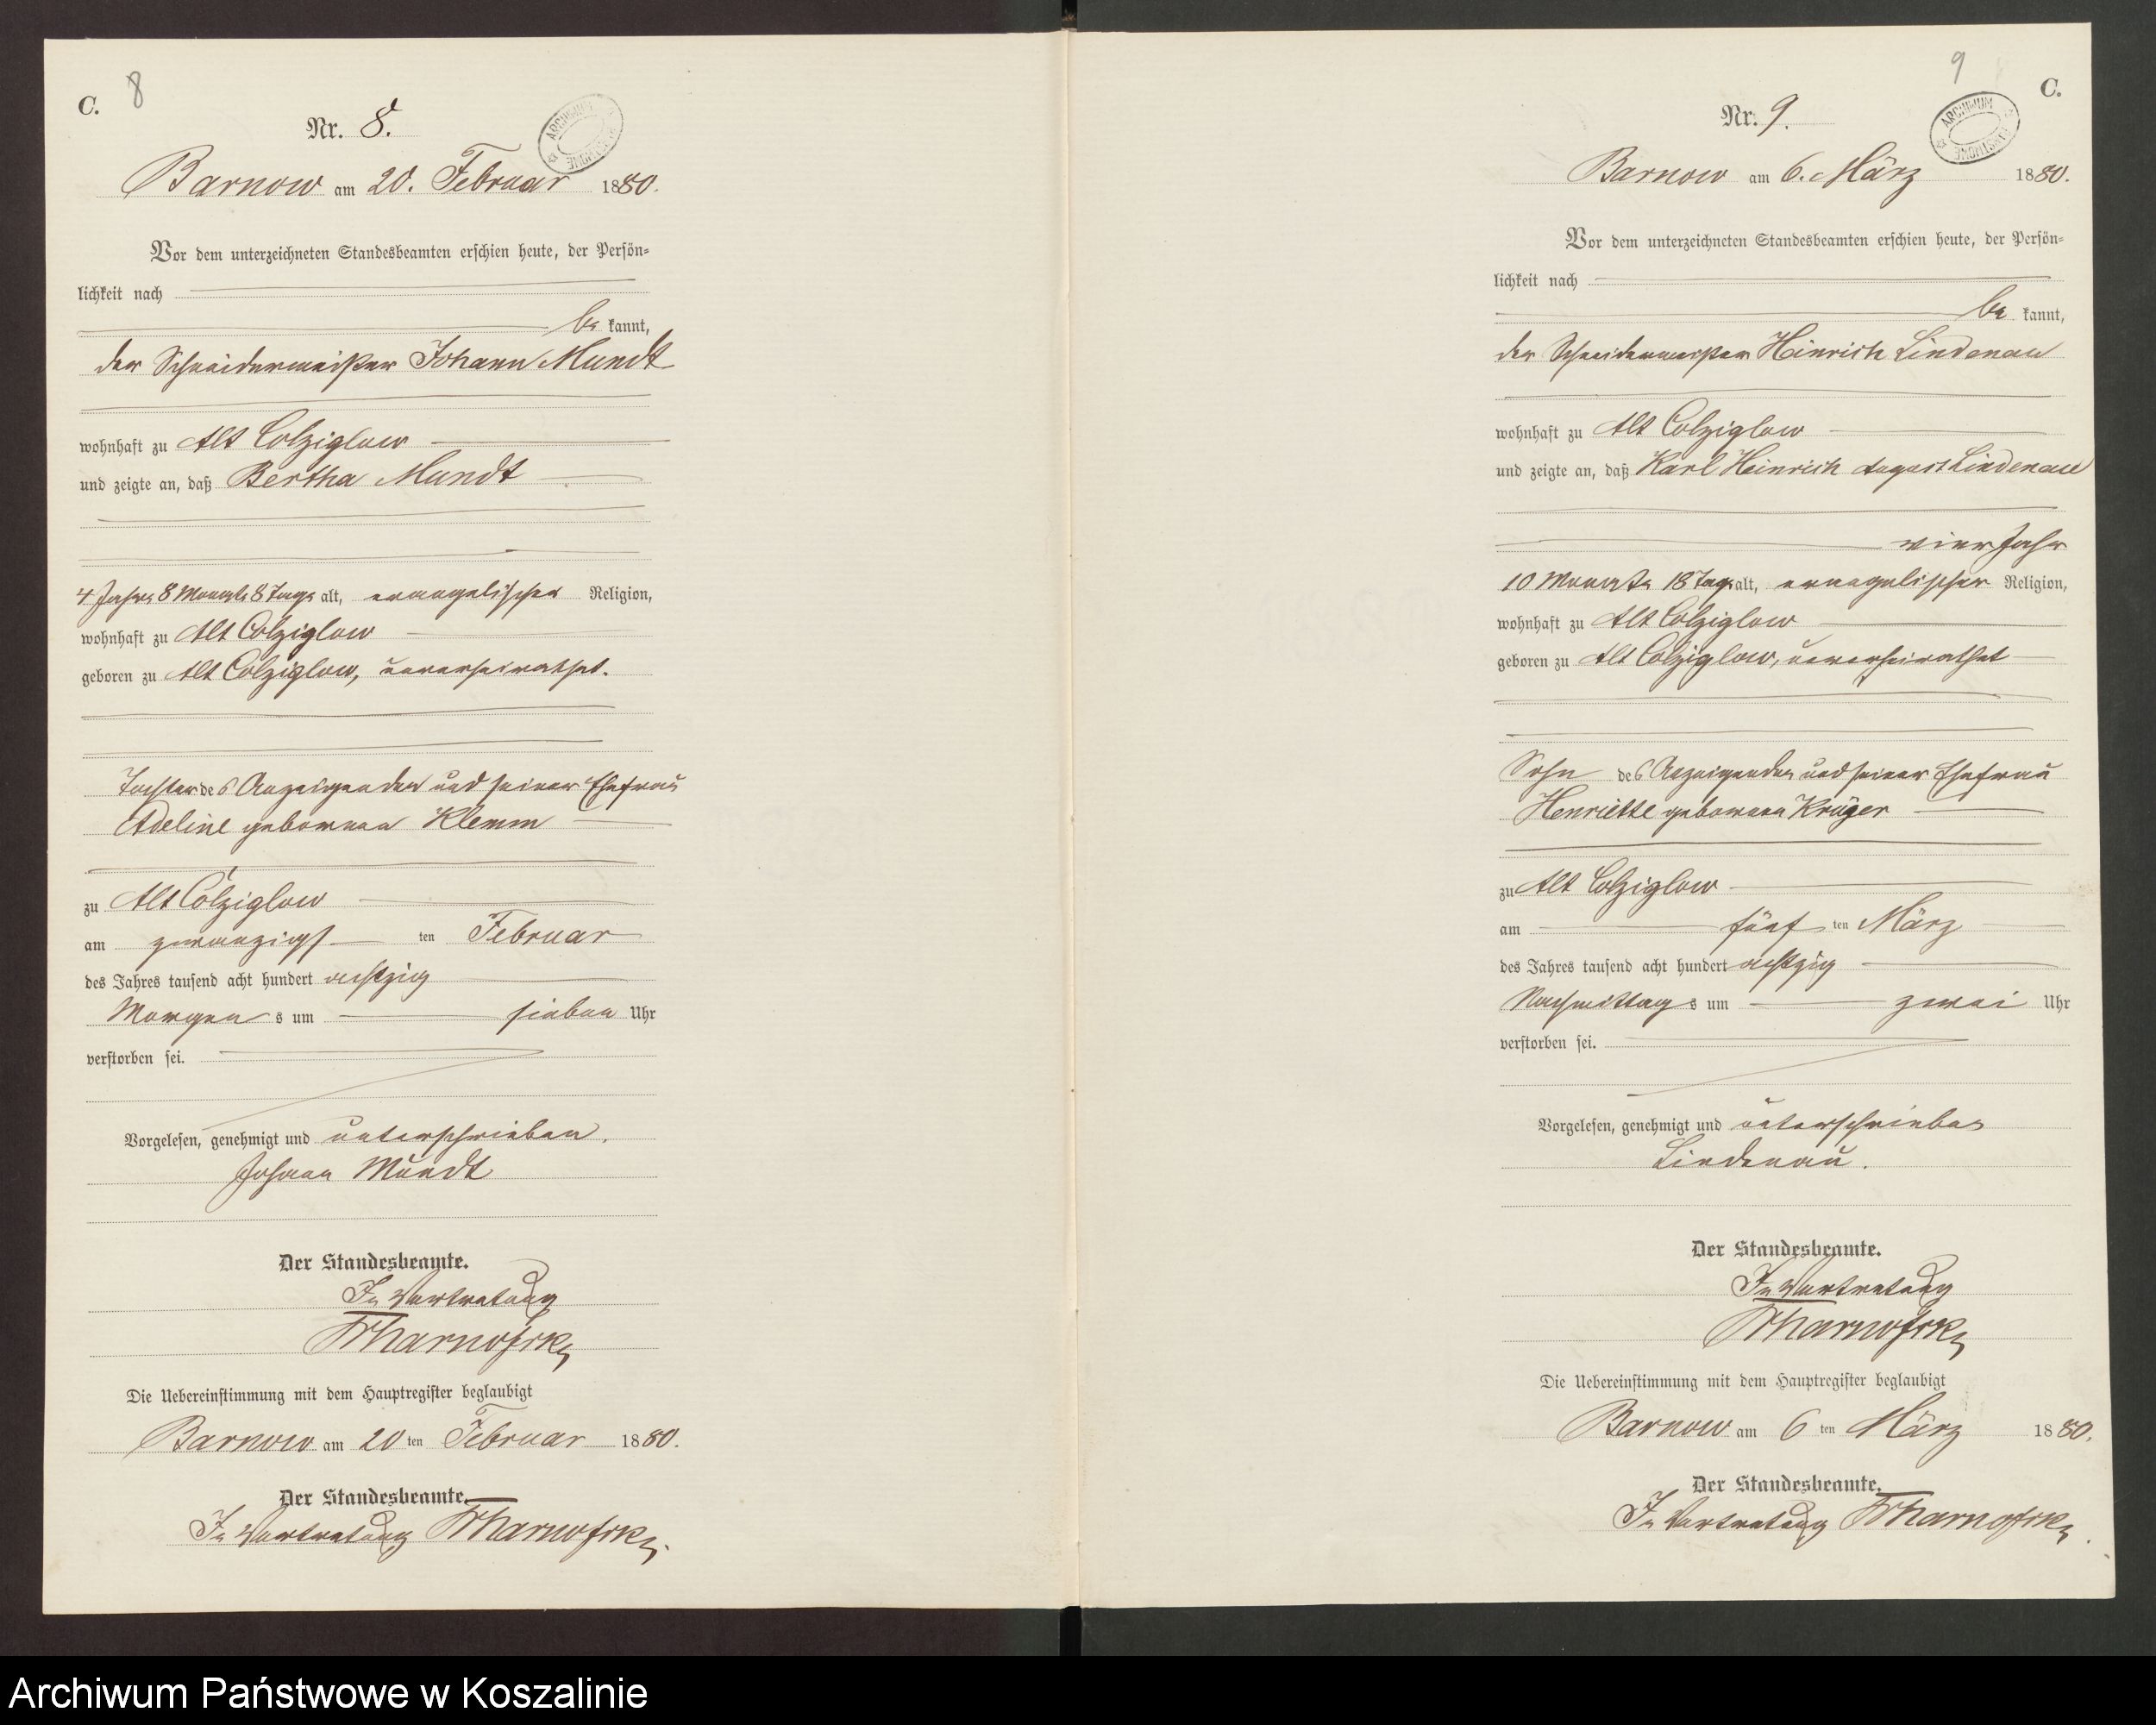 C. 8
Nr. 8.
ARCHIWUM
Barnow am 20. Februar 1880.
Vor dem unterzeichneten Standesbeamten erschien heute, der Persön-
lichkeit nach
be kannt,
der Schneidermeister Johann Mundt
wohnhaft zu Alt Colziglow
und zeigte an, daß Bertha Mundt
4 Jahre 8 Monate 8 Tage alt, evangelischer Religion,
wohnhaft zu Alt Colziglow
geboren zu Alt Colziglow, unverheirathet.
Tochter des Anzeigenden und seiner Ehefrau
Adeline geborenen Klemm
zu Alt Colziglow
am zwanzigsten Februar
des Jahres tausend acht hundert achtzig
Morgens um sieben Uhr
verstorben sei.
Vorgelesen, genehmigt und unterschrieben.
Johann Mundt
Der Standesbeamte.
In Vertretung
Die Uebereinstimmung mit dem Hauptregister beglaubigt
Barnow am 20 ten Februar 1880.
Der Standesbeamte.
In Vertretung
9
C.
Nr. 9.
ARCHIWUM
Barnow am 6. März 1880.
Vor dem unterzeichneten Standesbeamten erschien heute, der Persön-
lichkeit nach
be kannt,
der Schneidermeister Heinrich Lindenau
wohnhaft zu Alt Colziglow
und zeigte an, daß Karl Heinrich August Lindenau
vier Jahr
10 Monate 18 Tage alt, evangelischer Religion,
wohnhaft zu Alt Colziglow
geboren zu Alt Colziglow, unverheirathet
Sohn des Anzeigenden und seiner Ehefrau
Henriette geborenen Krüger
zu Alt Colziglow
am fünf ten März
des Jahres tausend acht hundert achtzig
Nachmittags um zwei Uhr
verstorben sei.
Vorgelesen, genehmigt und unterschrieben
Lindenau.
Der Standesbeamte.
In Vertretung
Die Uebereinstimmung mit dem Hauptregister beglaubigt
Barnow am 6 ten März 1880.
Der Standesbeamte.
In Vertretung
Archiwum Państwowe w Koszalinie